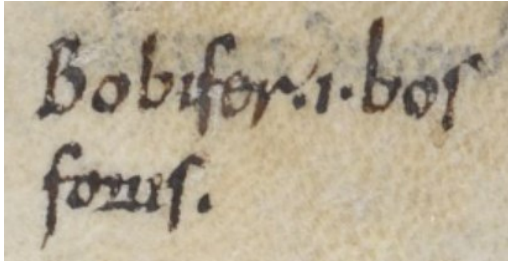 Bobifer .i. bos
ferus.